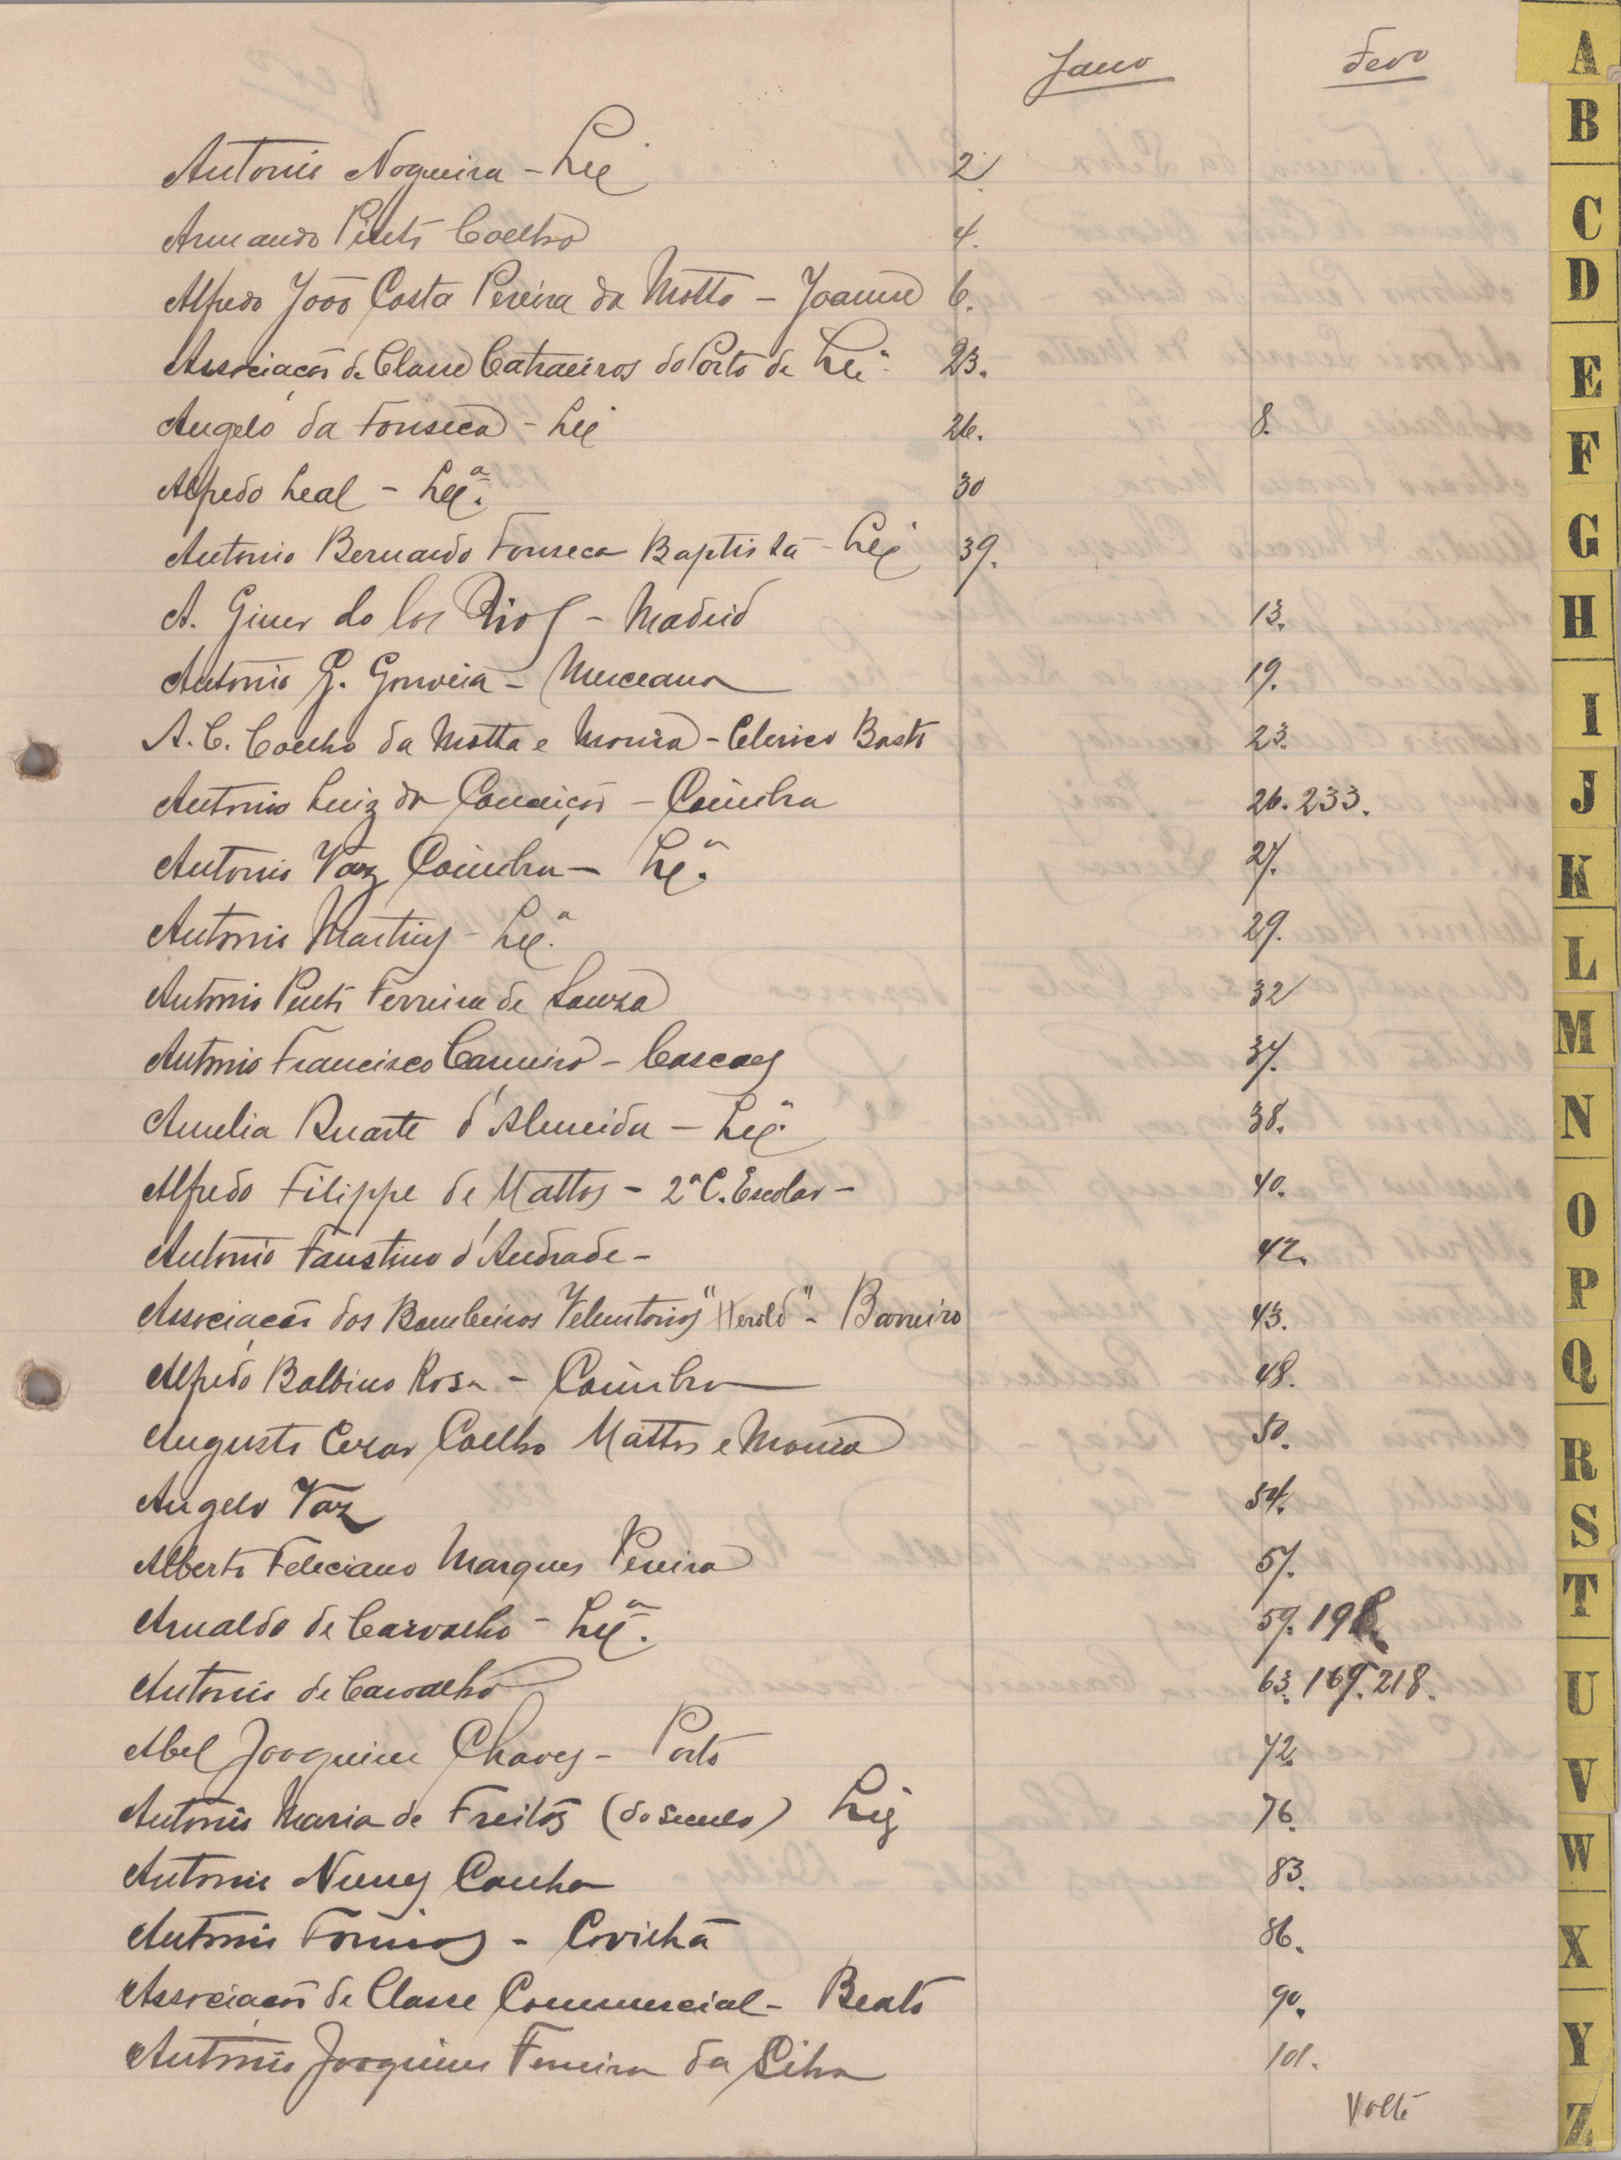 Janro Fevo
Antonio Nogueira - Lxa 2.
Armando Pinto Coelho 4.
Alfredo João Costa Pereira da Motta - Joanne 6.
Associação de Classe Catraeiros do Porto de Lxa 23.
Angelo da Fonseca - Lxa 26. 8.
Alfredo Leal - Lxª. 30
Antonio Bernardo Fonseca Baptista - Lxa 39.
A. Giner de los Rios - Madrid 13.
Antonio G. Gouveia - Merceana 19.
A. C. Coelho da Motta e Moura - Celorico Basto 23.
Antonio Luiz da Conceição - Coimbra 26. 233.
Antonio Vaz Coimbra - Lxª. 27.
Antonio Martins - Lxª. 29.
Antonio Pinto Ferreira de Souza 32
Antonio Francisco Carneiro - Cascaes 37.
Amelia Duarte d'Almeida - Lxª. 38.
Alfredo Filippe de Mattos - 2ª C. Escolar - 40.
Antonio Faustino d'Andrade - 42.
Associação dos Bombeiros Voluntarios "Herold" - Barreiro 43.
Alfredo Balbino Rosa - Coimbra 48.
Augusto Cezar Coelho Mattos e Moura 50.
Angelo Vaz 54.
Alberto Feleciano Marques Pereira 57.
Arnaldo de Carvalho - Lxª. 59. 198.
Antonio de Carvalho 63. 169. 218.
Abel Joaquim Chaves - Porto 72.
Antonio Maria de Freitas (do Seculo) Lxa 76.
Antonio Nunes Canha 83.
Antonio - Covilhã 86.
Associação de Classe Commercial - Beato 90.
Antonio Joaquim Ferreira da Silva 101.
Volte
A
B
C
D
E
F
G
H
I
J
K
L
M
N
O
P
Q
R
S
T
U
V
W
X
Y
Z